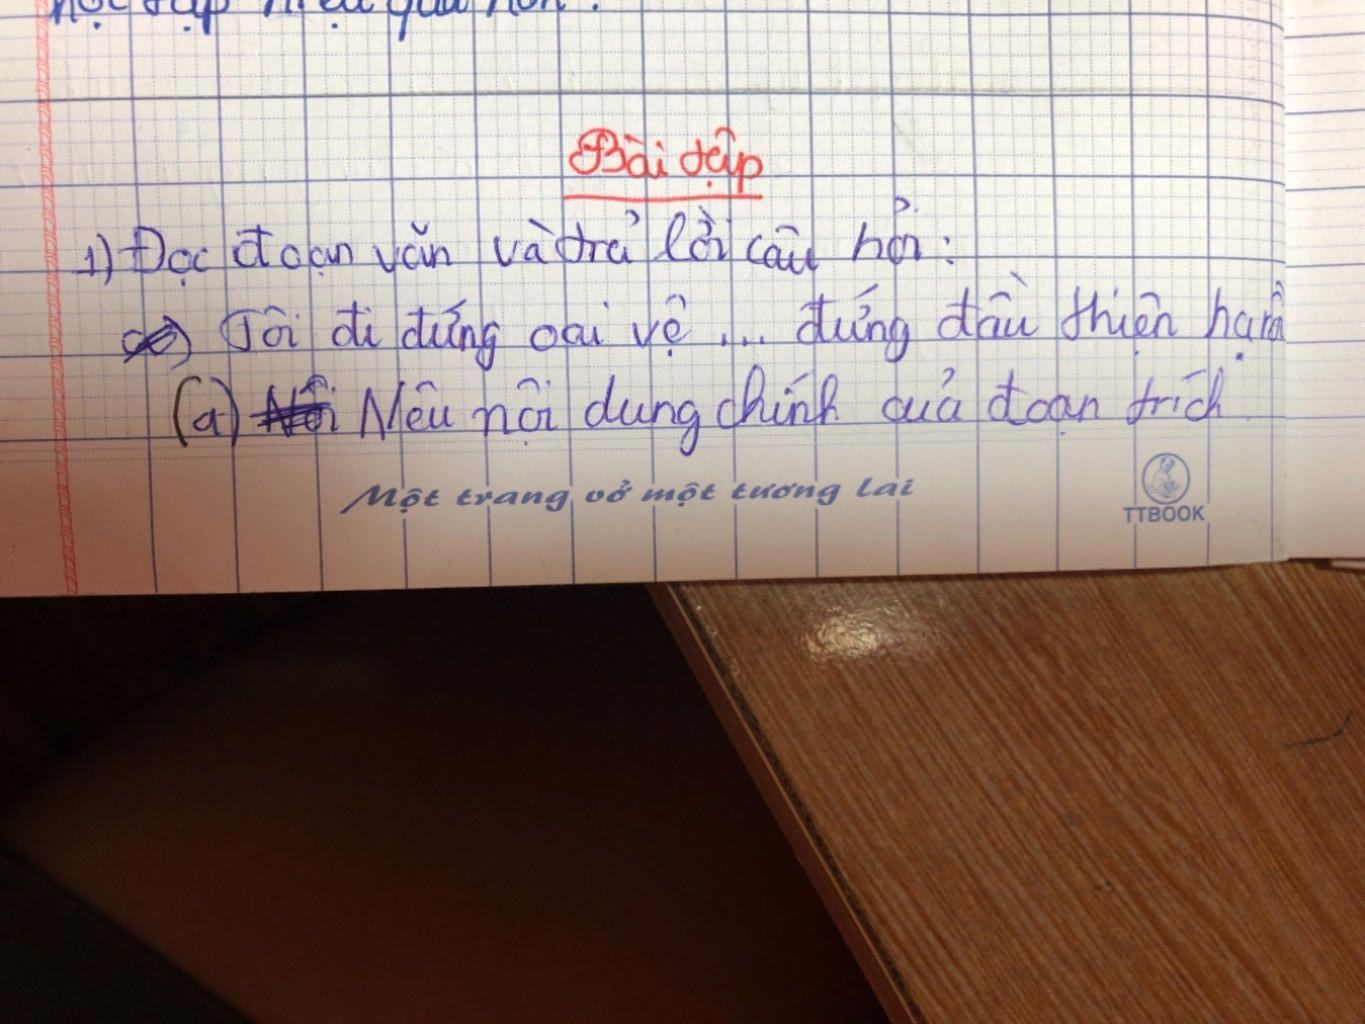 học tập hiệu quả hơn.
Bài tập
1) Đọc đoạn văn và trả lời câu hỏi:
Tôi đi đứng oai vệ ... đứng đầu thiên hạ
(a) Nêu nội dung chính quả đoạn trích
Một trang vở một tương lai
TTBOOK